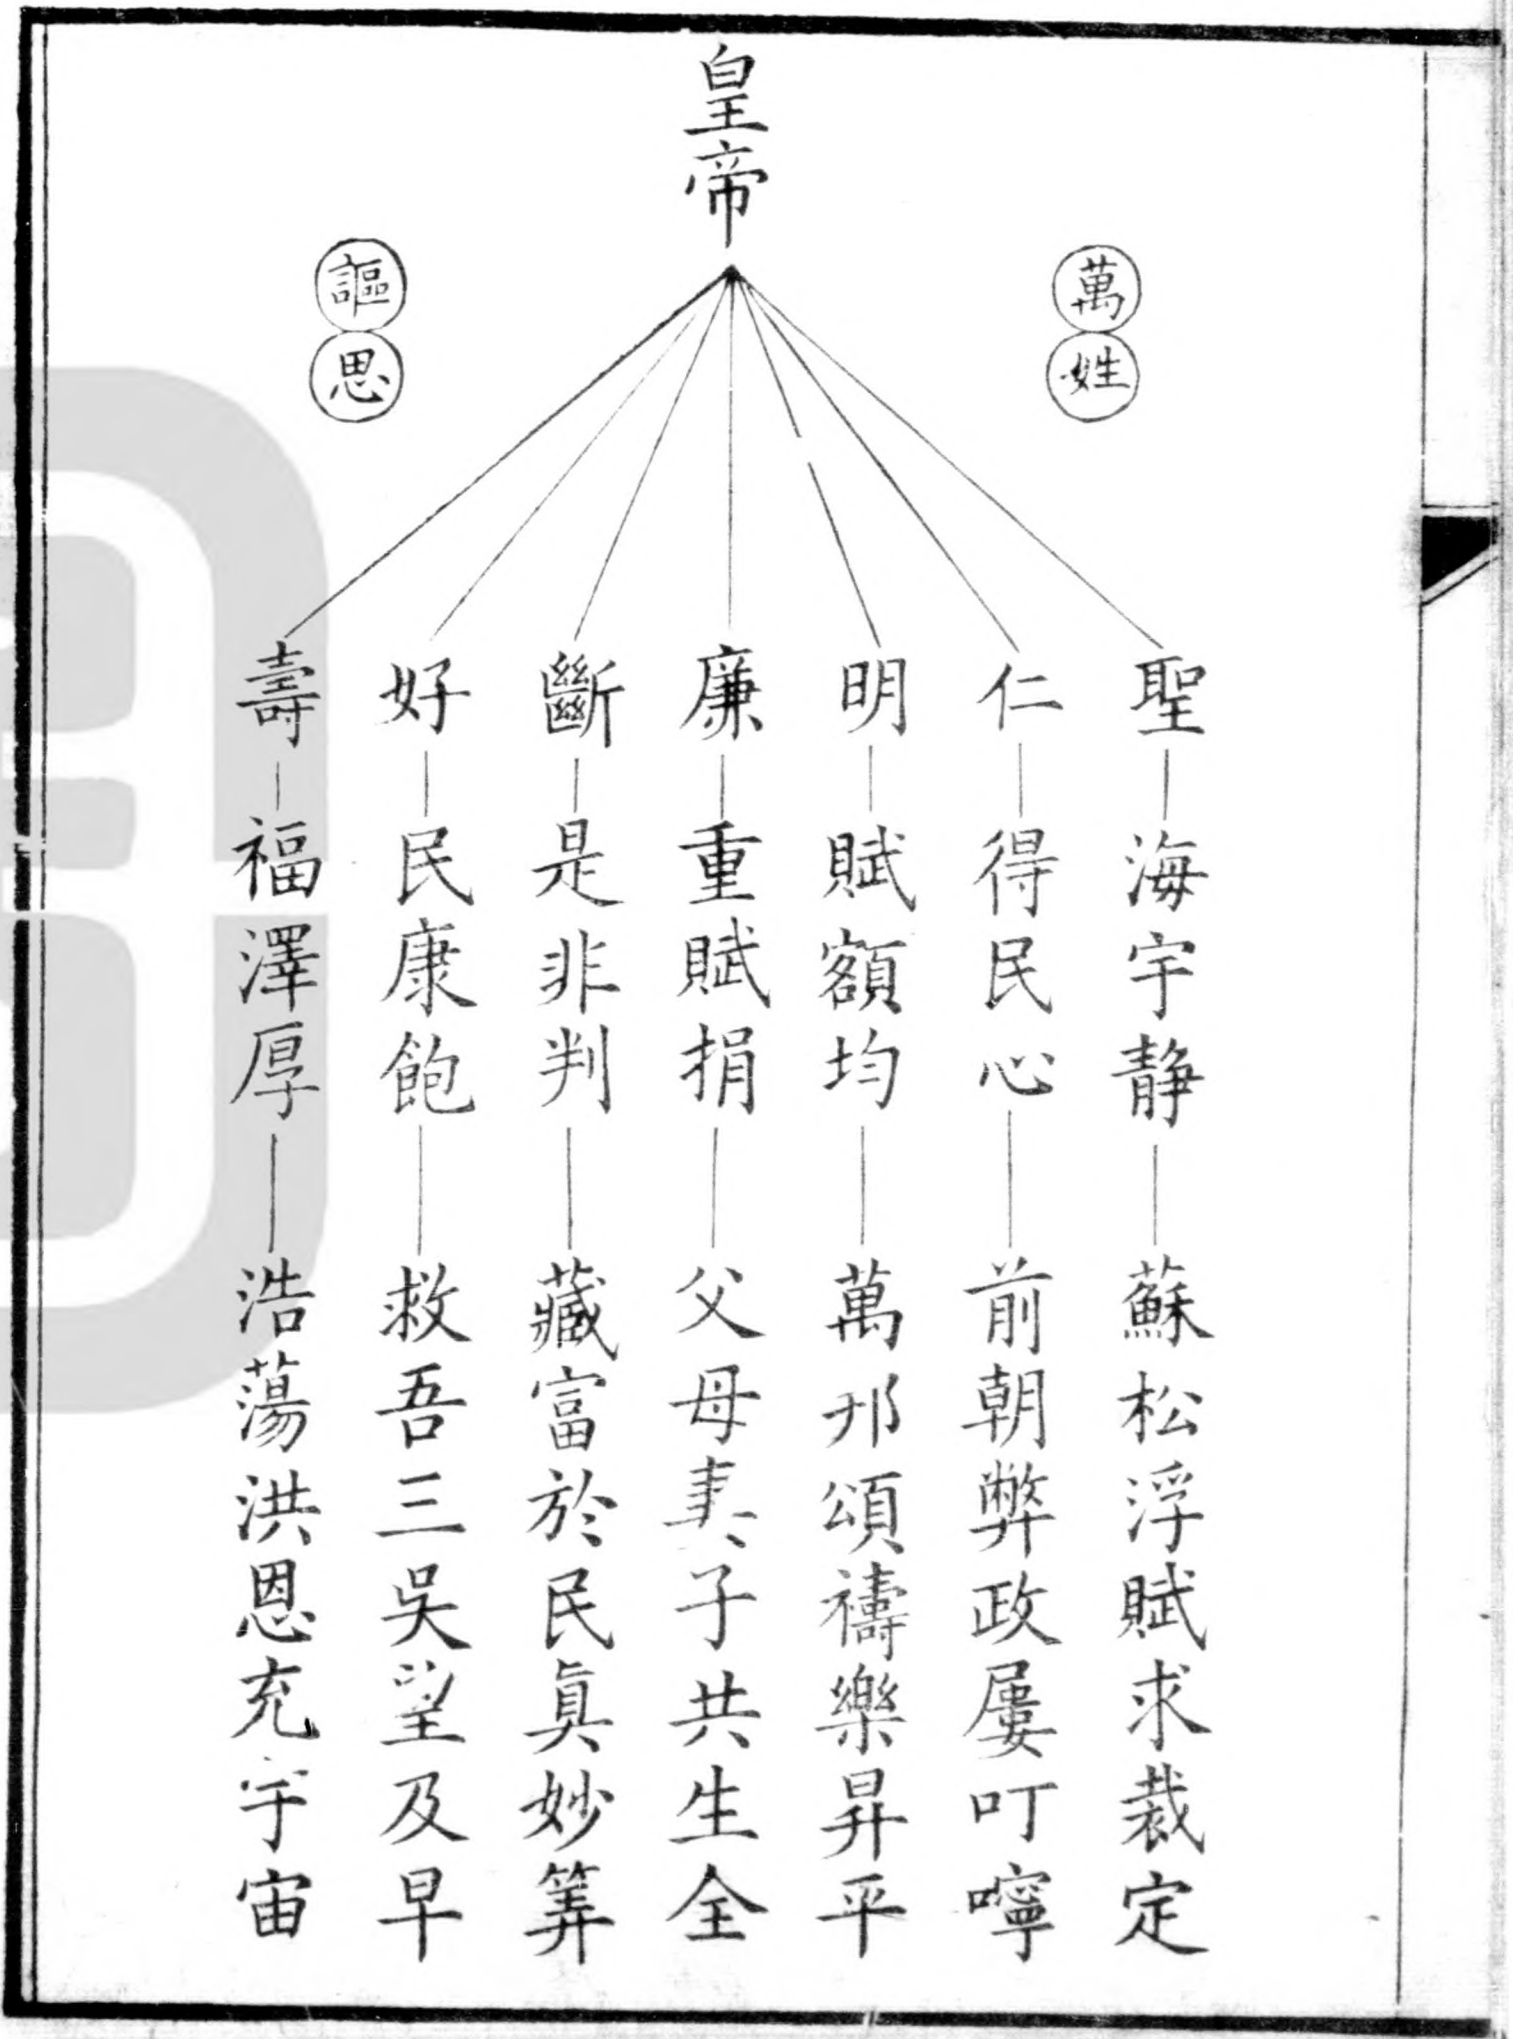 皇帝
萬姓
謳思
聖 海宇静 蘇松浮賦求裁定
仁 得民心 前朝弊政屢叮嚀
明 賦額均 萬邦頌禱樂昇平
廉 重賦捐 父母妻子共生全
斷 是非判 藏富於民眞妙筭
好 民康飽 救吾三吳望及早
壽 福澤厚 浩蕩洪恩充宇宙